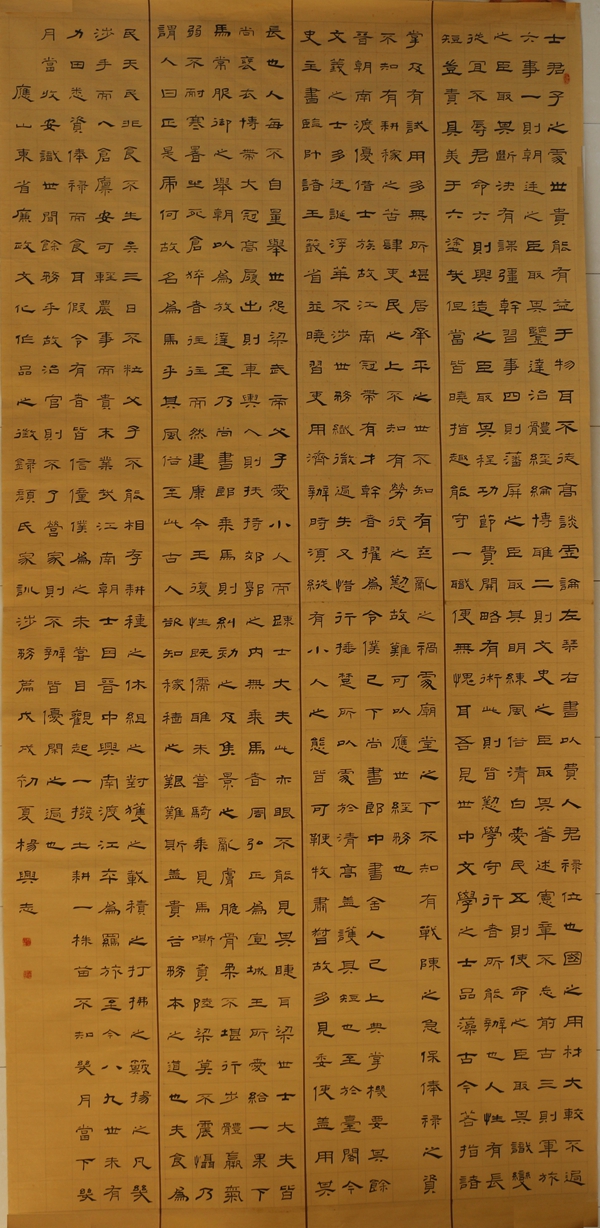 士君子之處世貴能有益于物耳不徒高談虛論左琴右書以費人君祿位也國之用材大較不過
六事一則朝廷之臣取其鑒達治體經綸博雅二則文史之臣取其著述憲章不忘前古三則軍旅
之臣取其斷決有謀彊幹習事四則藩屏之臣取其明練風俗清白愛民五則使命之臣取其識變
從宜不辱君命六則興造之臣取其程功節費開略有術此則皆懃學守行者所能辦也人性有長
短豈責具美于六塗哉但當皆曉指趣能守一職便無愧耳吾見世中文學之士品藻古今若指諸
掌及有試用多無所堪居承平之世不知有喪亂之禍處廟堂之下不知有戰陳之急保俸祿之資
不知有耕稼之苦肆吏民之上不知有勞役之懃故難可以應世經務也
晉朝南渡優借士族故江南冠帶有才幹者擢為令僕已下尚書郎中書舍人已上典掌機要其餘
文義之士多迂誕浮華不涉世務纖微過失又惜行捶楚所以處於清高蓋護其短也至於臺閣令
史主書監帥諸王籤省並曉習吏用濟辦時須縱有小人之態皆可鞭杖肅督故多見委使蓋用其
長也人每不自量舉世怨梁武帝父子愛小人而疎士大夫此亦眼不能見其睫耳梁世士大夫皆
尚裒衣博帶大冠高履出則車輿入則扶持郊郭之內無乘馬者周弘正為宣城王所愛給一果下
馬常服御之舉朝以為放達至乃尚書郎乘馬則糾劾之及侯景之亂膚脆骨柔不堪行步體羸氣
弱不耐寒暑坐死倉猝者往往而然建康令王復性既儒雅未嘗騎乘見馬嘶賁陸梁莫不震懾乃
謂人曰正是虎何故名為馬乎其風俗至此古人欲知稼穡之艱難斯蓋貴谷務本之道也夫食為
民天民非食不生矣三日不粒父子不能相存耕種之休組之對獲之載積之打拂之簸揚之凡幾
涉手而入倉廩安可輕農事而貴末業哉江南朝士因晉中興南渡江卒為羈旅至今八九世未有
力田悉資俸祿而食耳假令有者皆信僮僕為之未嘗目觀起一撥土耕一株苗不知幾月當下幾
月當收安識世間餘務乎故治官則不了營家則不辦皆優閑之過也
應山東省廉政文化作品之徵錄顏氏家訓涉務篇戊戌初夏楊興志